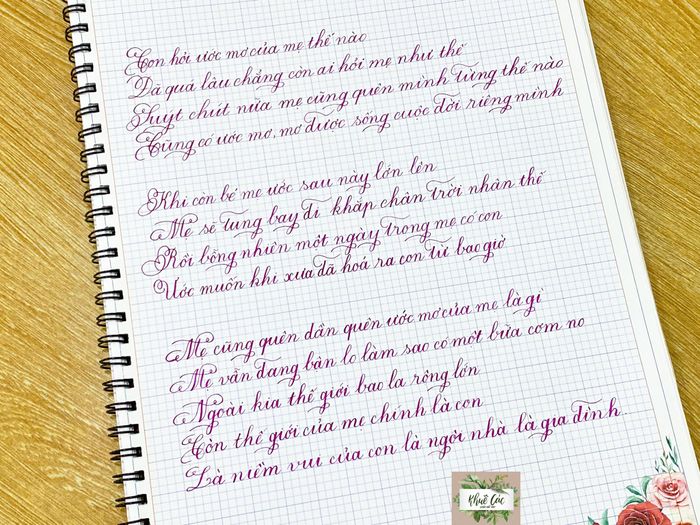 Con hỏi ước mơ của mẹ thế nào
Đã quá lâu chẳng còn ai hỏi mẹ như thế
Suýt chút nữa mẹ cũng quên mình từng thế nào
Cũng có ước mơ, mơ được sống cuộc đời riêng mình
Khi còn bé mẹ ước sau này lớn lên
Mẹ sẽ tung bay đi khắp chân trời nhân thế
Rồi bỗng nhiên một ngày trong mẹ có con
Ước muốn khi xưa đã hoá ra con từ bao giờ
Mẹ cũng quên dần quên ước mơ của mẹ là gì
Mẹ vẫn đang bận lo làm sao có một bữa cơm no
Ngoài kia thế giới bao la rộng lớn
Còn thế giới của mẹ chính là con
Là niềm vui của con là ngôi nhà là gia đình
Khuê Các